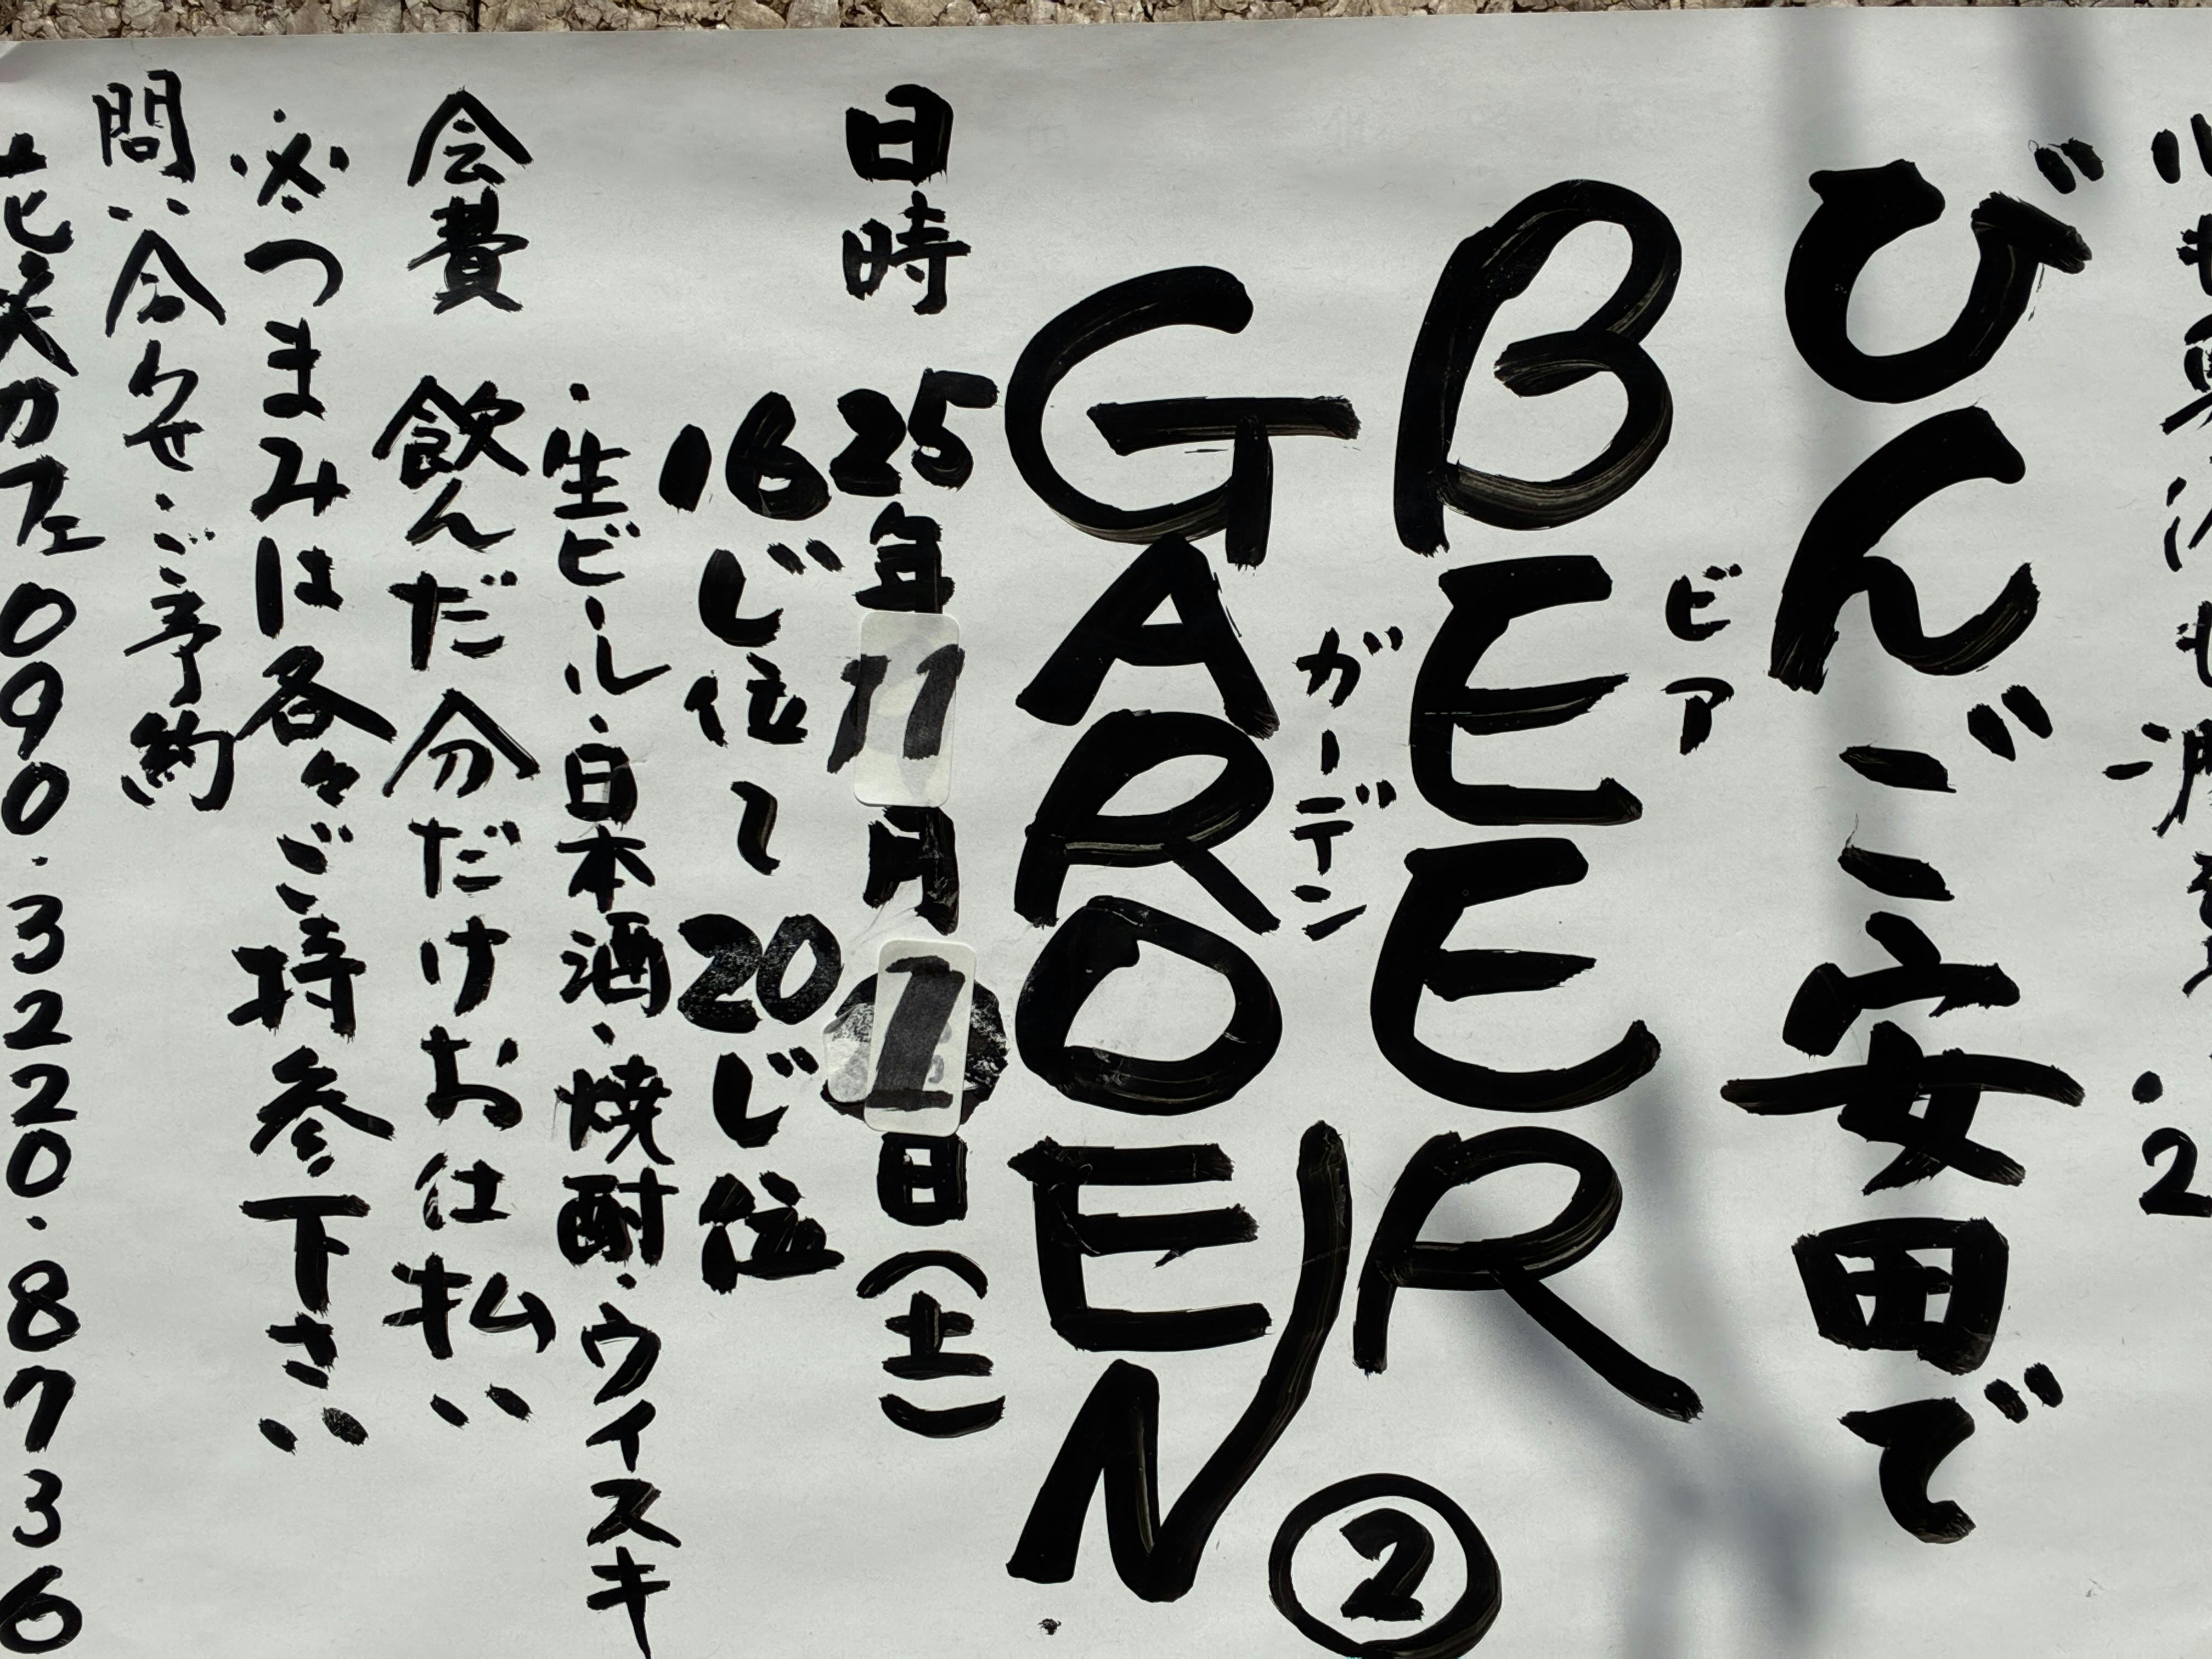 びんご安田で
ビア
BEER
ガーデン
GARDEN ②
日時 25年11月1日(土)
16じ位〜20じ位
・生ビール・日本酒・焼酎・ウイスキ
会費 飲んだ分だけお仕払い
※つまみは各々ご持参下さい
問い合わせ・ご予約
花笑カフェ 090.3220.8736